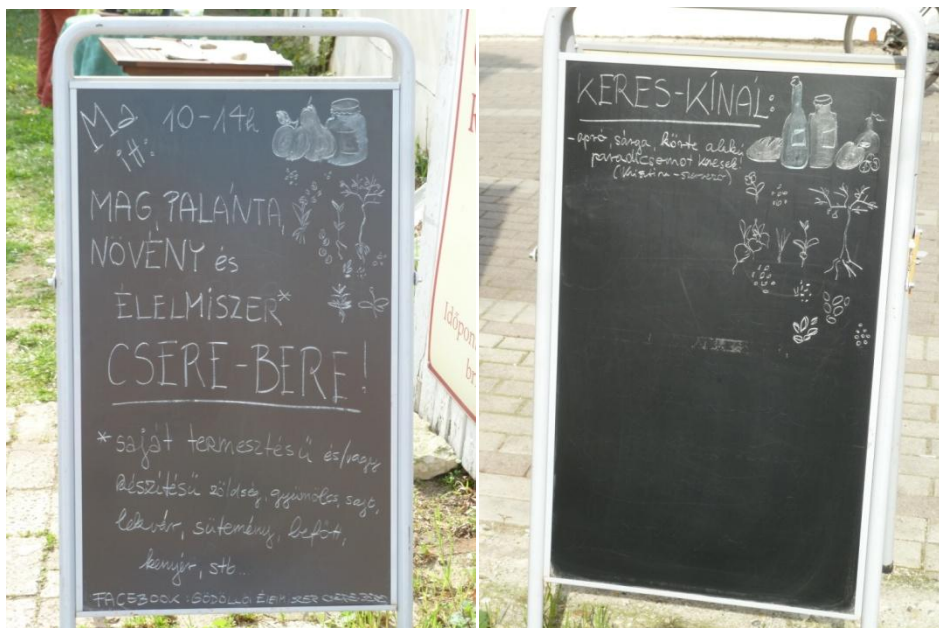 Ma 10-14h
itt:
MAG, PALÁNTA,
NÖVÉNY és
ÉLELMISZER*
CSERE-BERE!
* saját termesztésű és/vagy
készítésű zöldség, gyümölcs, sajt,
lekvár, sütemény, befőtt,
kenyér, stb...
FACEBOOK: GÖDÖLLŐI ÉLELMISZER CSERE-BERE
Időpon
br
KERES-KÍNÁL:
- apró, sárga, körte alakú
paradicsomot keresek!